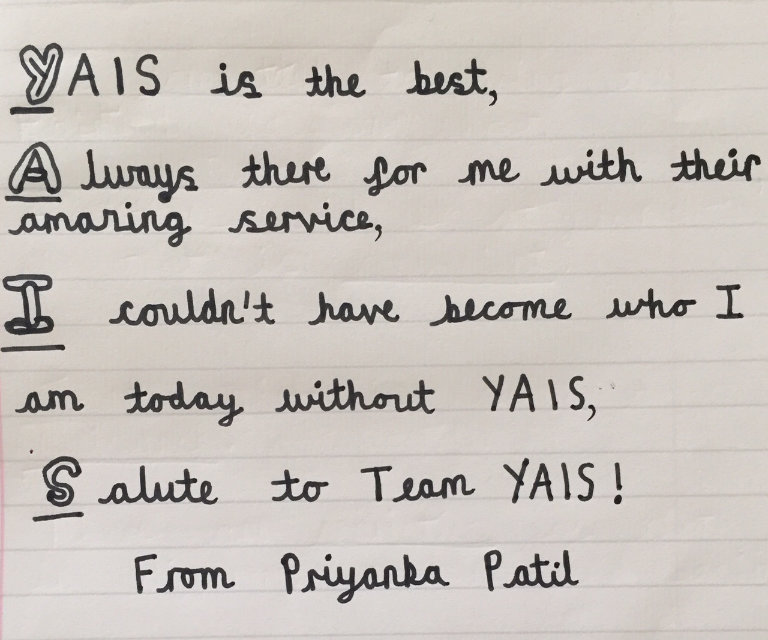 YAIS is the best,
Always there for me with their
amazing service,
I couldn't have become who I
am today without YAIS,
Salute to Team YAIS!
From Priyanka Patil